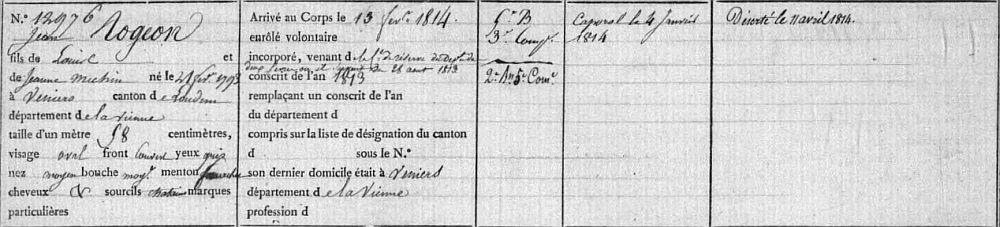 N.º 12976
Jean Rogeon
fils de Louis et
de Jeanne né le 1793
à Veniers canton de Loudun
département de la Vienne
taille d'un mètre 58 centimètres,
visage oval front couvert yeux gris
nez moyen bouche moy.e menton
cheveux & sourcils marques
particulières
Arrivé au Corps le 13 fév.er 1814.
enrôlé volontaire
incorporé, venant de la C.ie de réserve du Dép.t de
28 aout 1813
conscrit de l'an 1813
remplaçant un conscrit de l'an
du département d
compris sur la liste de désignation du canton
d sous le N.º
son dernier domicile était à Veniers
département de la Vienne
profession d
5.e B
3.e Comp.e
2.e 5.e Com.e
Caporal le 4 Janvier
1814
Déserté le 11 avril 1814.